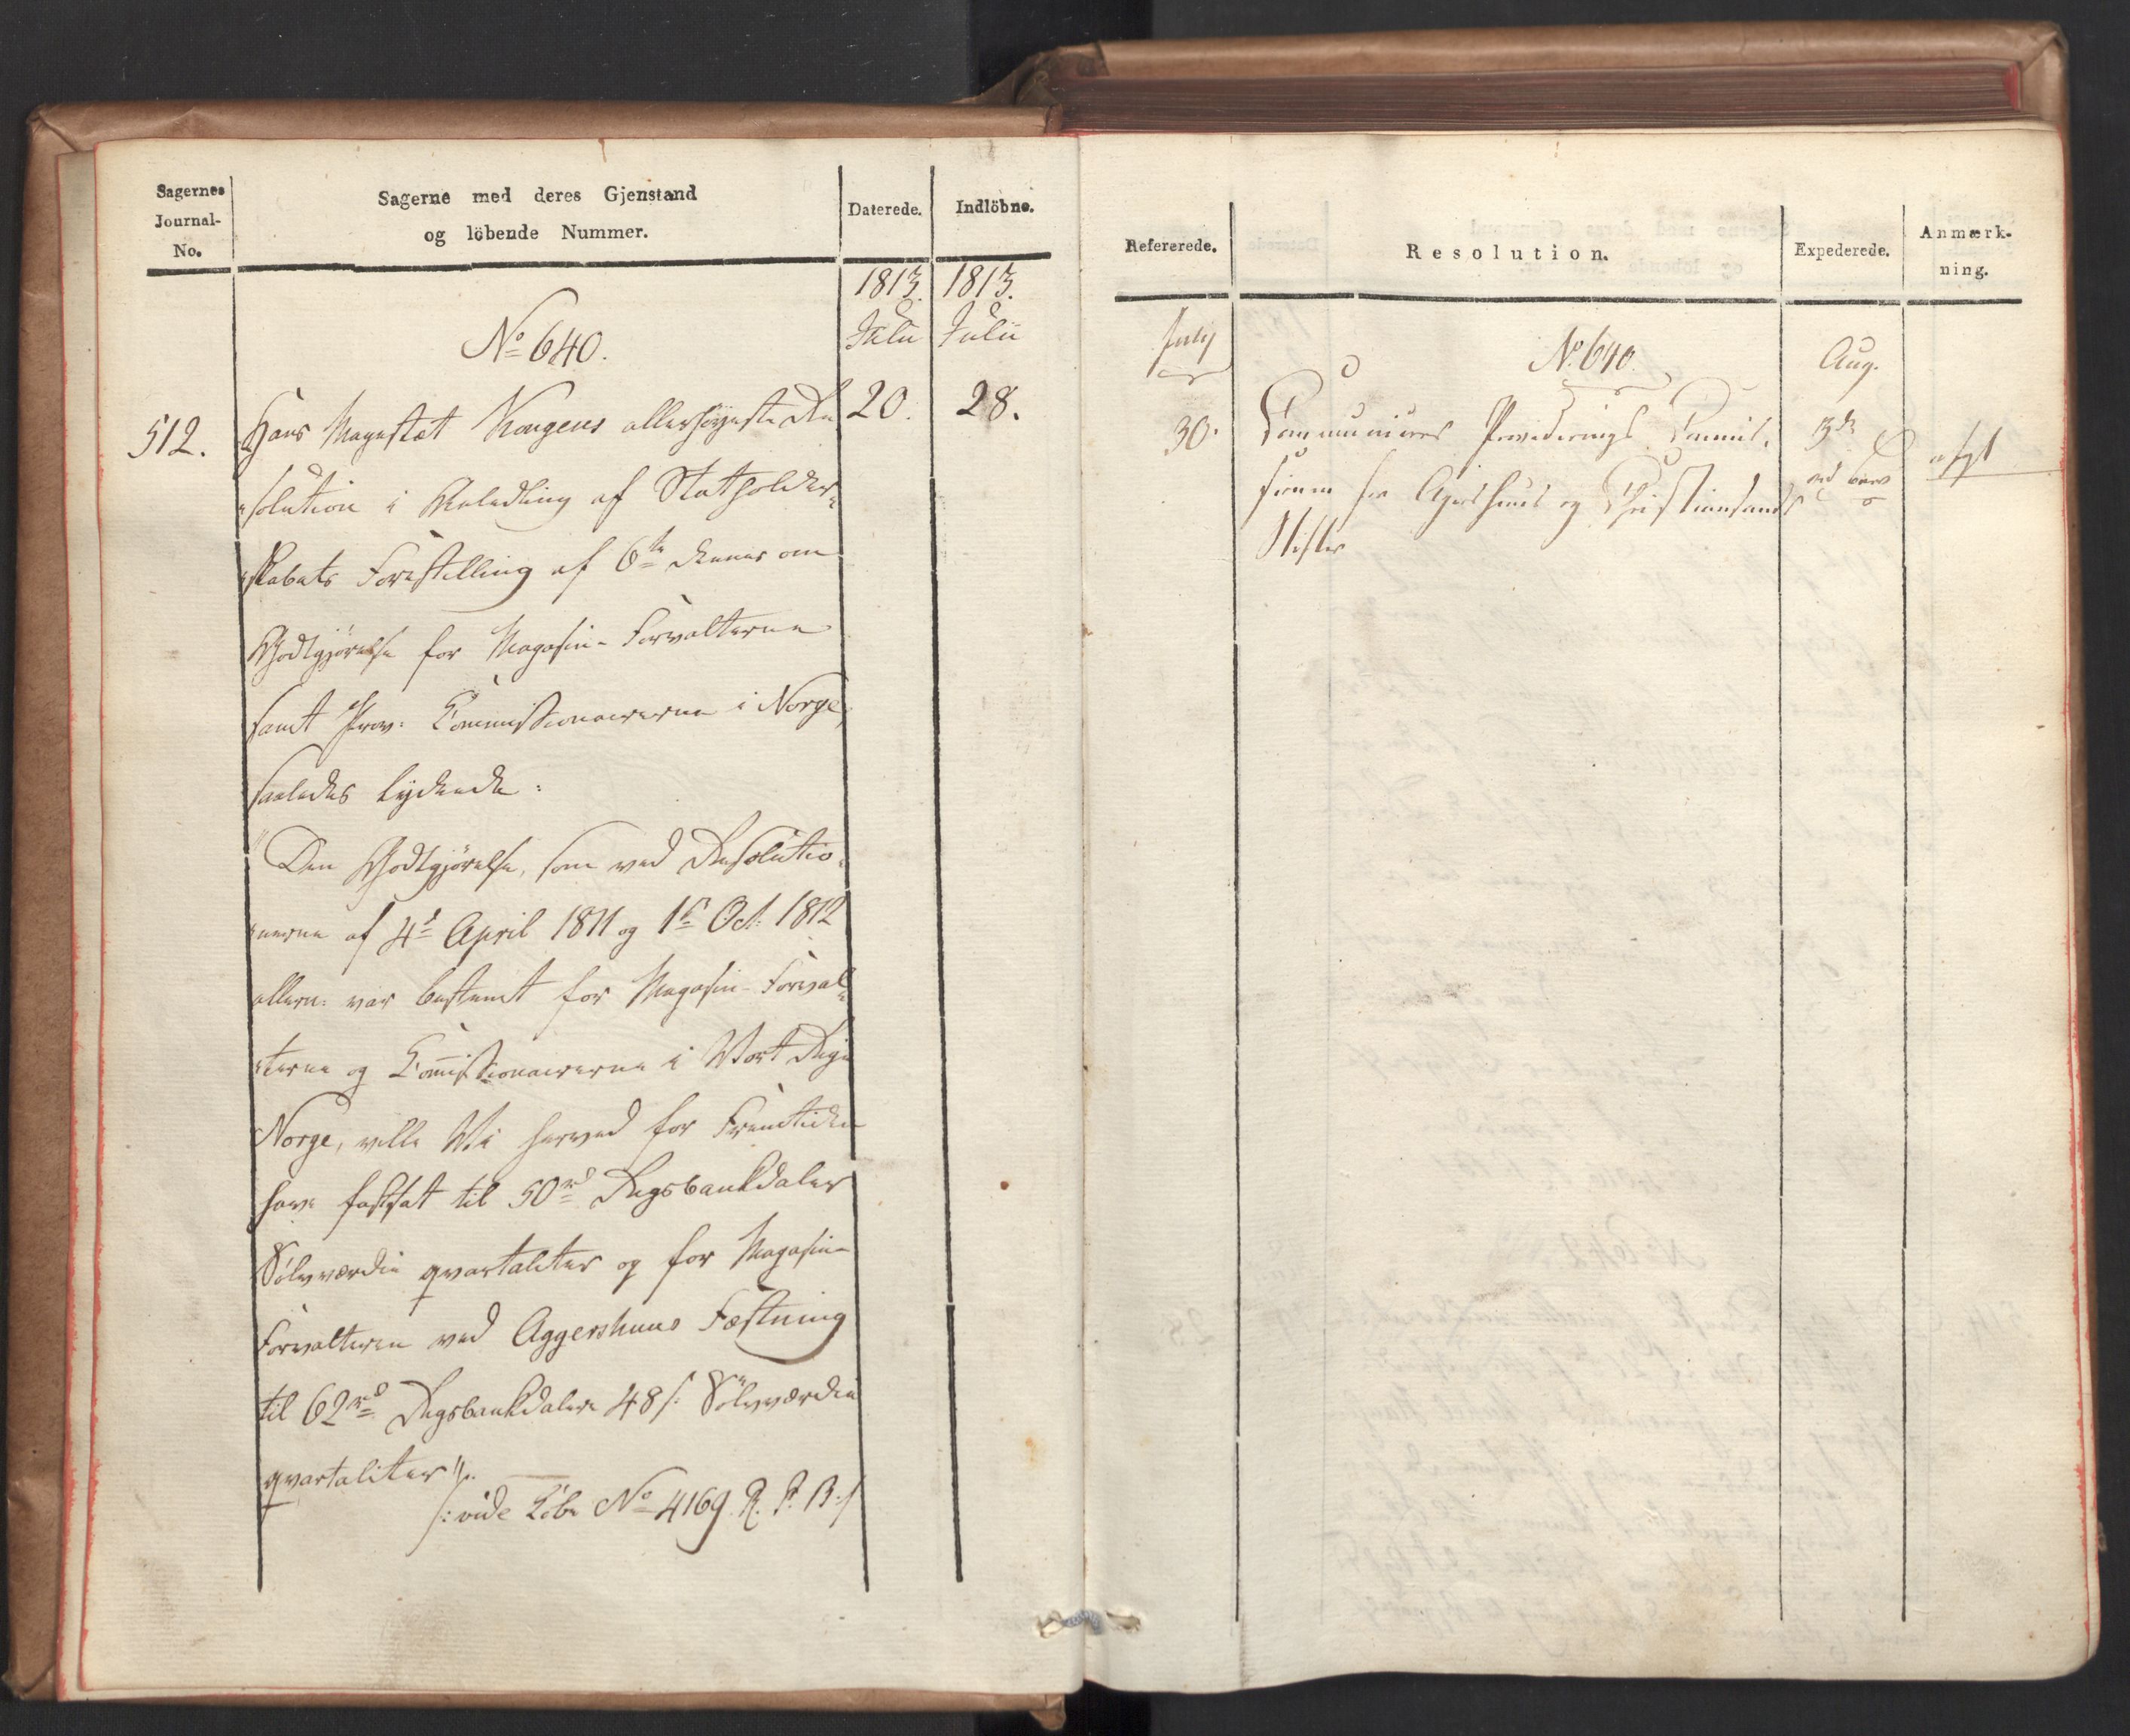 Sagernes
Journal-
No.
Sagerne med deres Gjenstand
og löbende Nummer.
Daterede.
Indlöbne.
1813.
1813.
Julii
Julii
No 640.
512.
Hans Mayestæt Kongens allerhöyeste Re
20.
28.
solution i Anledling af Statholder
skabets Forestilling af 6te dennes om
Godtgjörelse for Magasin-Forvalterne
samt Prov: Commissionairerne i Norge,
saaledes lydende:
"Den Godtgjörelse, som ved Resolutio-
nerne af 4d April 1811 og 1st Oct: 1812
allern: var bestemt for Magasin-Forval
terne og Com̄issionairerne i Vort Rige
Norge, ville Vi herved for Fremtiden
have fastsat til 50rd Regsbankdaler
Sölvværdie qvartaliter og for Magasin-
Forvalteren ved Aggershuus Fæstning
til 62rd Regsbankdaler 48 s: Sölvværdie
qvartaliter".
/: vide Löbe No 4169. R. P. B:/
Refererede.
Resolution.
Expederede.
Anmærk-
ning.
July
No. 640.
Aug.
30.
Communiceres Provederings Commis-
3de
sionen for Agershuus og Christiansands
ved
afgt
Stifter